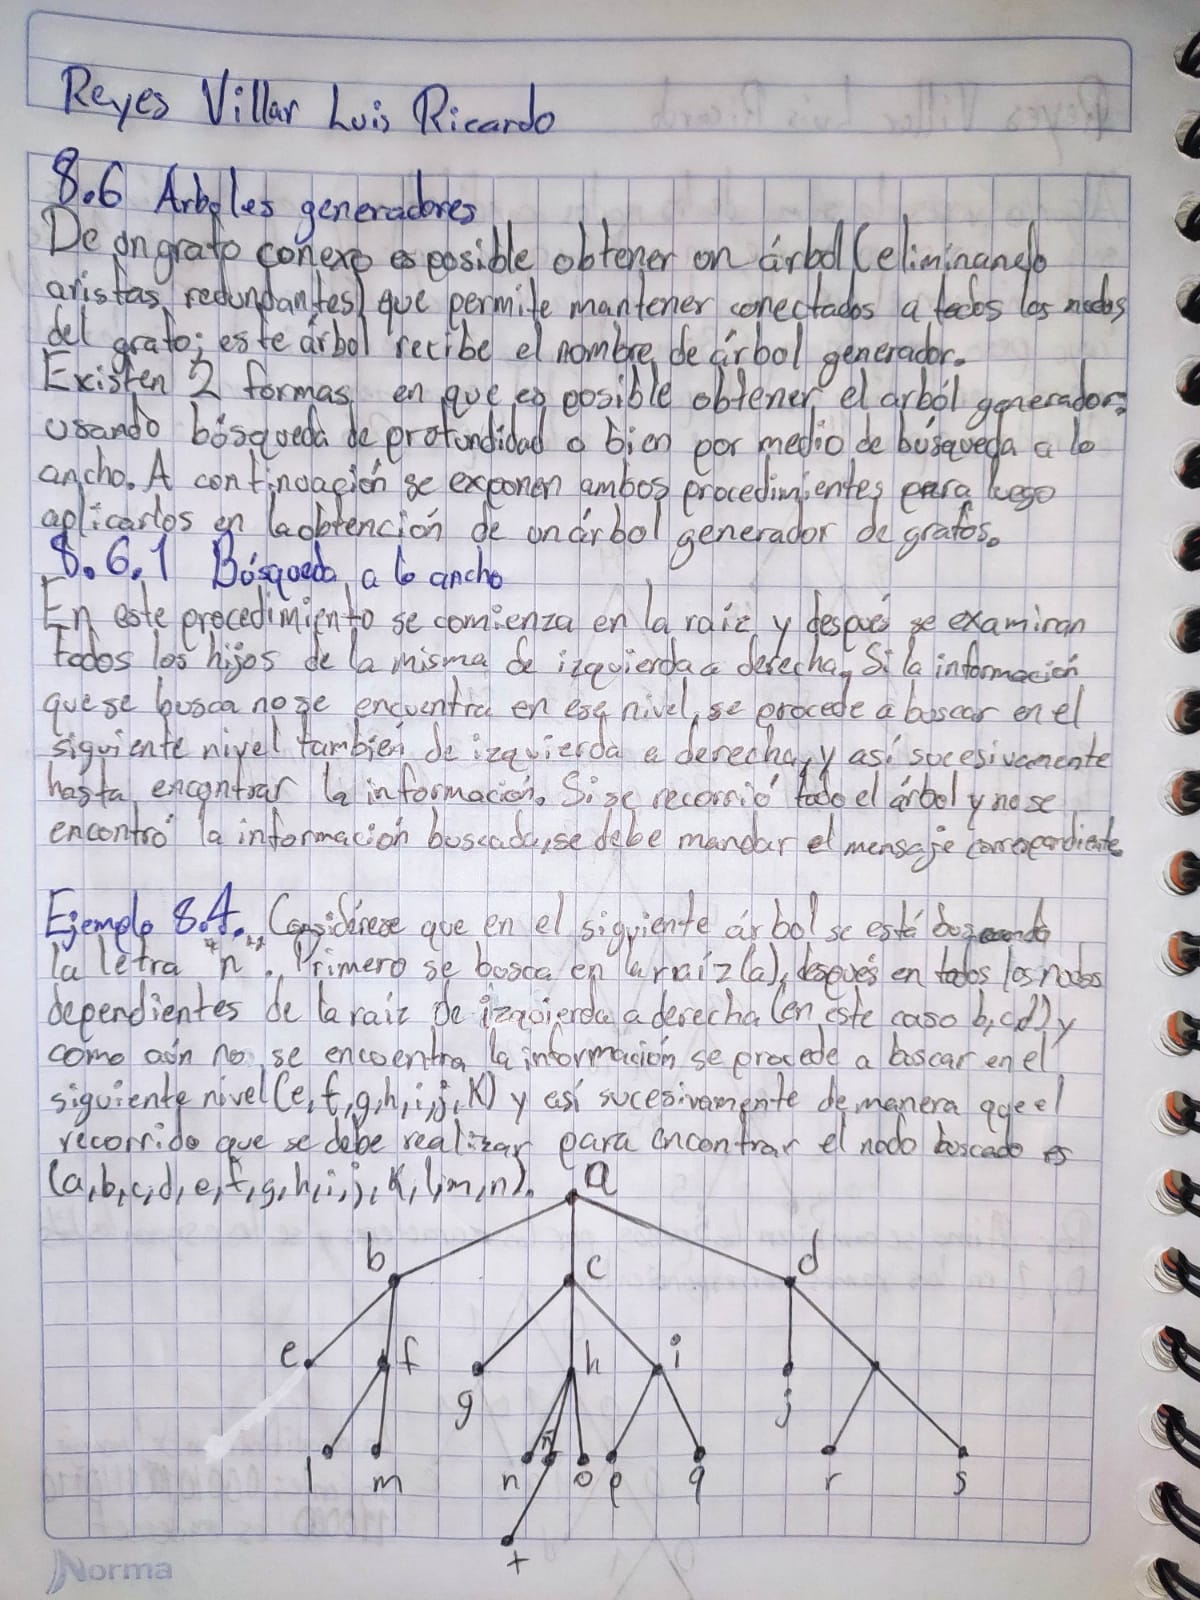 Reyes Villar Luis Ricardo
8.6 Arboles generadores
De un grafo conexo es posible obtener un árbol (eliminando
aristas redundantes) que permite mantener conectados a todos los nodos
del grafo; este árbol recibe el nombre de árbol generador.
Existen 2 formas en que es posible obtener el arból generador:
usando búsqueda de profundidad o bien por medio de búsqueda a lo
ancho. A continuación se exponen ambos procedimientos para luego
aplicarlos en la obtención de un árbol generador de grafos.
8.6.1 Búsqueda a lo ancho
En este procedimiento se comienza en la raíz y despues se examinan
todos los hijos de la misma de izquierda a derecha. Si la información
que se busca no se encuentra en ese nivel, se procede a buscar en el
siguiente nivel también de izquierda a derecha, y así sucesivamente
hasta encontrar la información. Si se recorrió todo el árbol y no se
encontró la información buscada, se debe mandar el mensaje correspondiente.
Ejemplo 8.4. Considérese que en el siguiente árbol se está buscando
la letra "n". Primero se busca en la raíz (a), después en todos los nodos
dependientes de la raíz de izquierda a derecha (en este caso b,c,d) y
como aún no se encuentra la información se procede a buscar en el
siguiente nivel (e,f,g,h,i,j,k) y así sucesivamente de manera que el
recorrido que se debe realizar para encontrar el nodo buscado es
(a,b,c,d,e,f,g,h,i,j,k,l,m,n).
a
b c d
e f g h i j
l m n ñ o p q r s
t
Norma